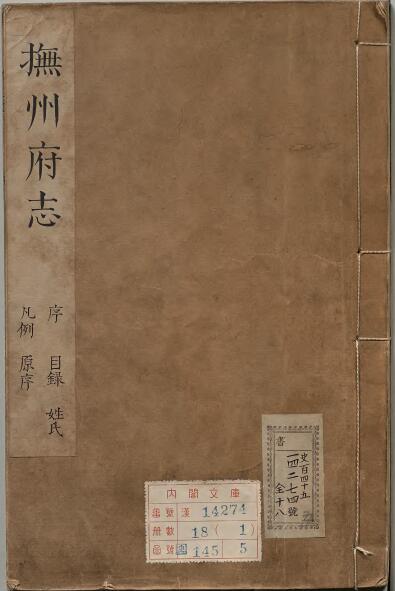 撫州府志
序 目錄 姓氏
凡例 原序
書
史百四十五
一四二七四號
全十八
内閣文庫
番號 漢 14274
册數 18 ( 1 )
函號 145 5